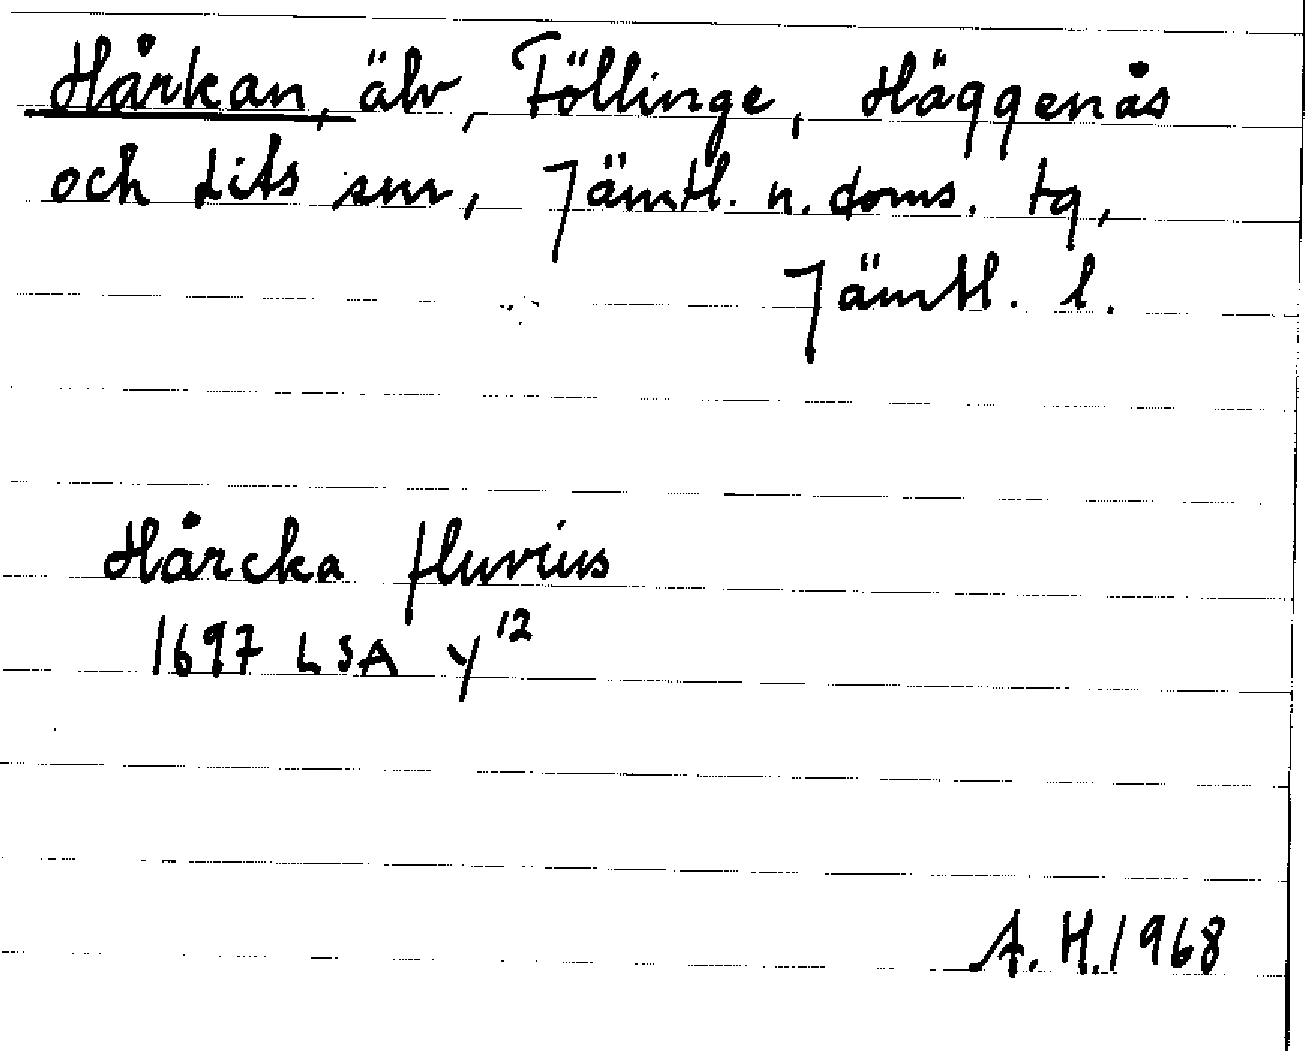 Hårkan, älv, Föllinge, Häggenås
och Lits snr, Jämtl. n. doms. tg,
Jämtl. l.
Hårcka fluvius
1697 LSA Y¹²
A. H. 1968